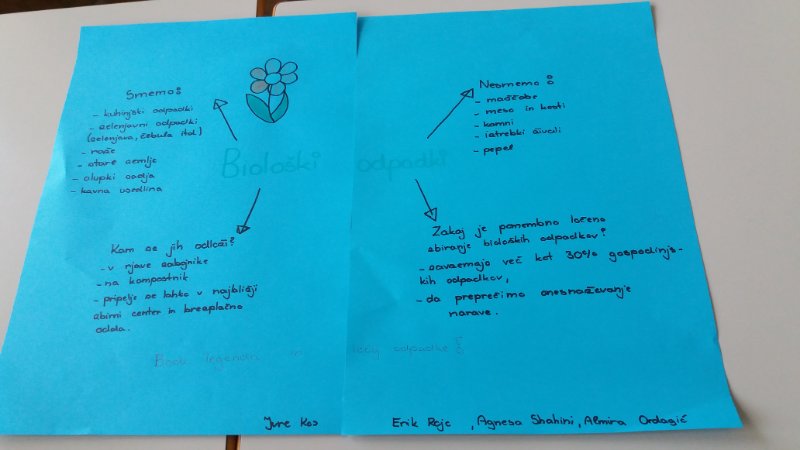 Smemo:
- kuhinjski odpadki
- zelenjavni odpadki
(zelenjava, čebula itd.)
- rože
- stare zemlje
- olupki sadja
- kavna usedlina
Biološki odpadki
Nesmemo:
- maščobe
- meso in kosti
- kamni
- iztrebki živali
- pepel
Kam se jih odlaži?
- v rjave zabojnike
- na kompostnik
- pripelje se lahko v najbližji
zbirni center in brezplačno
odda.
Zakaj je pomembno ločeno
zbiranje bioloških odpadkov?
- zavzemajo več kot 30% gospodinjs-
kih odpadkov,
- da preprečimo onesnaževanje
narave.
Bodi legenda odpadke!
Jure Kos
Erik Roje, Agnesa Shahini, Almira Ordagić